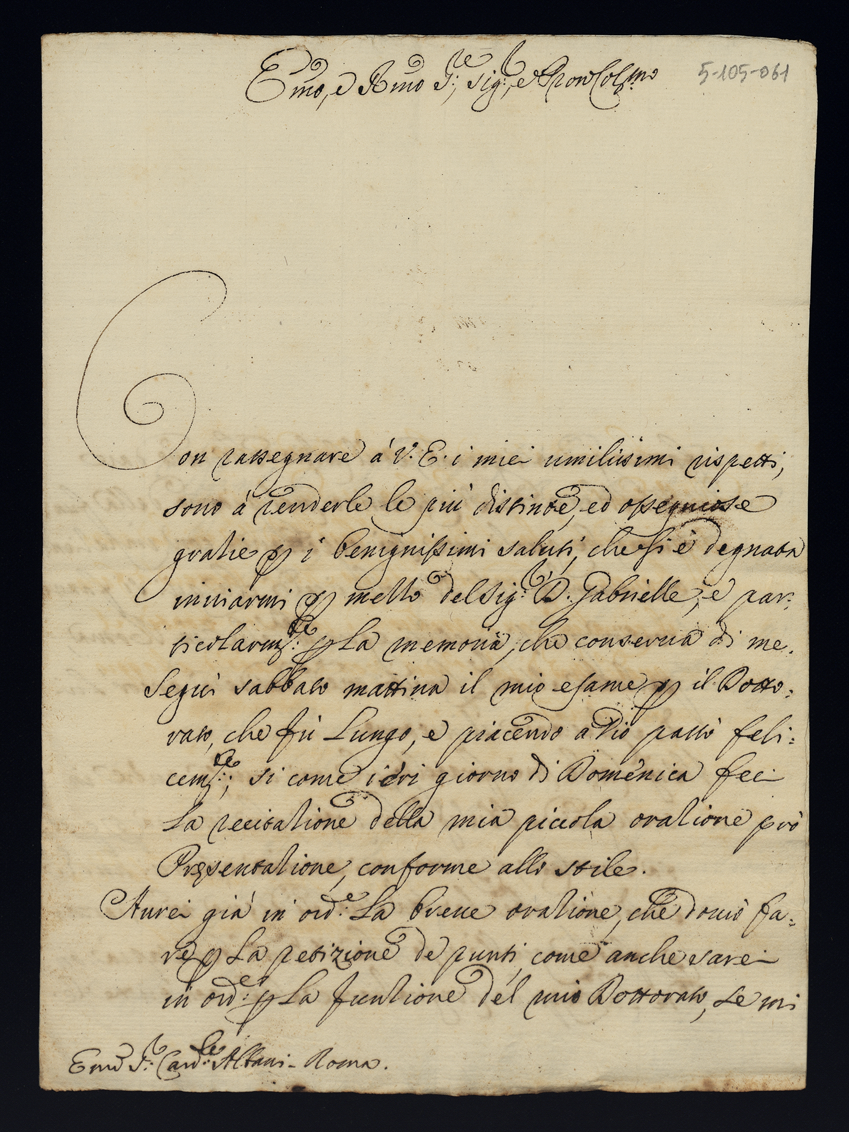 Emo, e Rmo Sr:, Sig:r, e Pron Col:mo
5-105-061
Con rassegnare à V. E. i miei umilissimi rispetti,
sono à renderle le più distinte, ed ossequiose
gratie p i benignissimi saluti, che si è degnata
inviarmi p mezzo del Sig:r D. Gabrielle, e par:
ticolarm:te p La memoria, che conserva di me.
Seguì sabbato mattina il mio esame p il Dotto:
rato, che fù Lungo, e piacendo a Dio passò feli:
cem:te; si come ieri giorno di Domenica feci
La recitatione della mia piccola oratione prò
Presentatione, conforme allo stile.
Aurei già in ord:e La breue oratione, che douò fa:
re p La petizione de punti, come anche sarei
in ord:e p La funtione del mio Dottorato, se mi
Emo Sr: Card:le Albani - Roma.